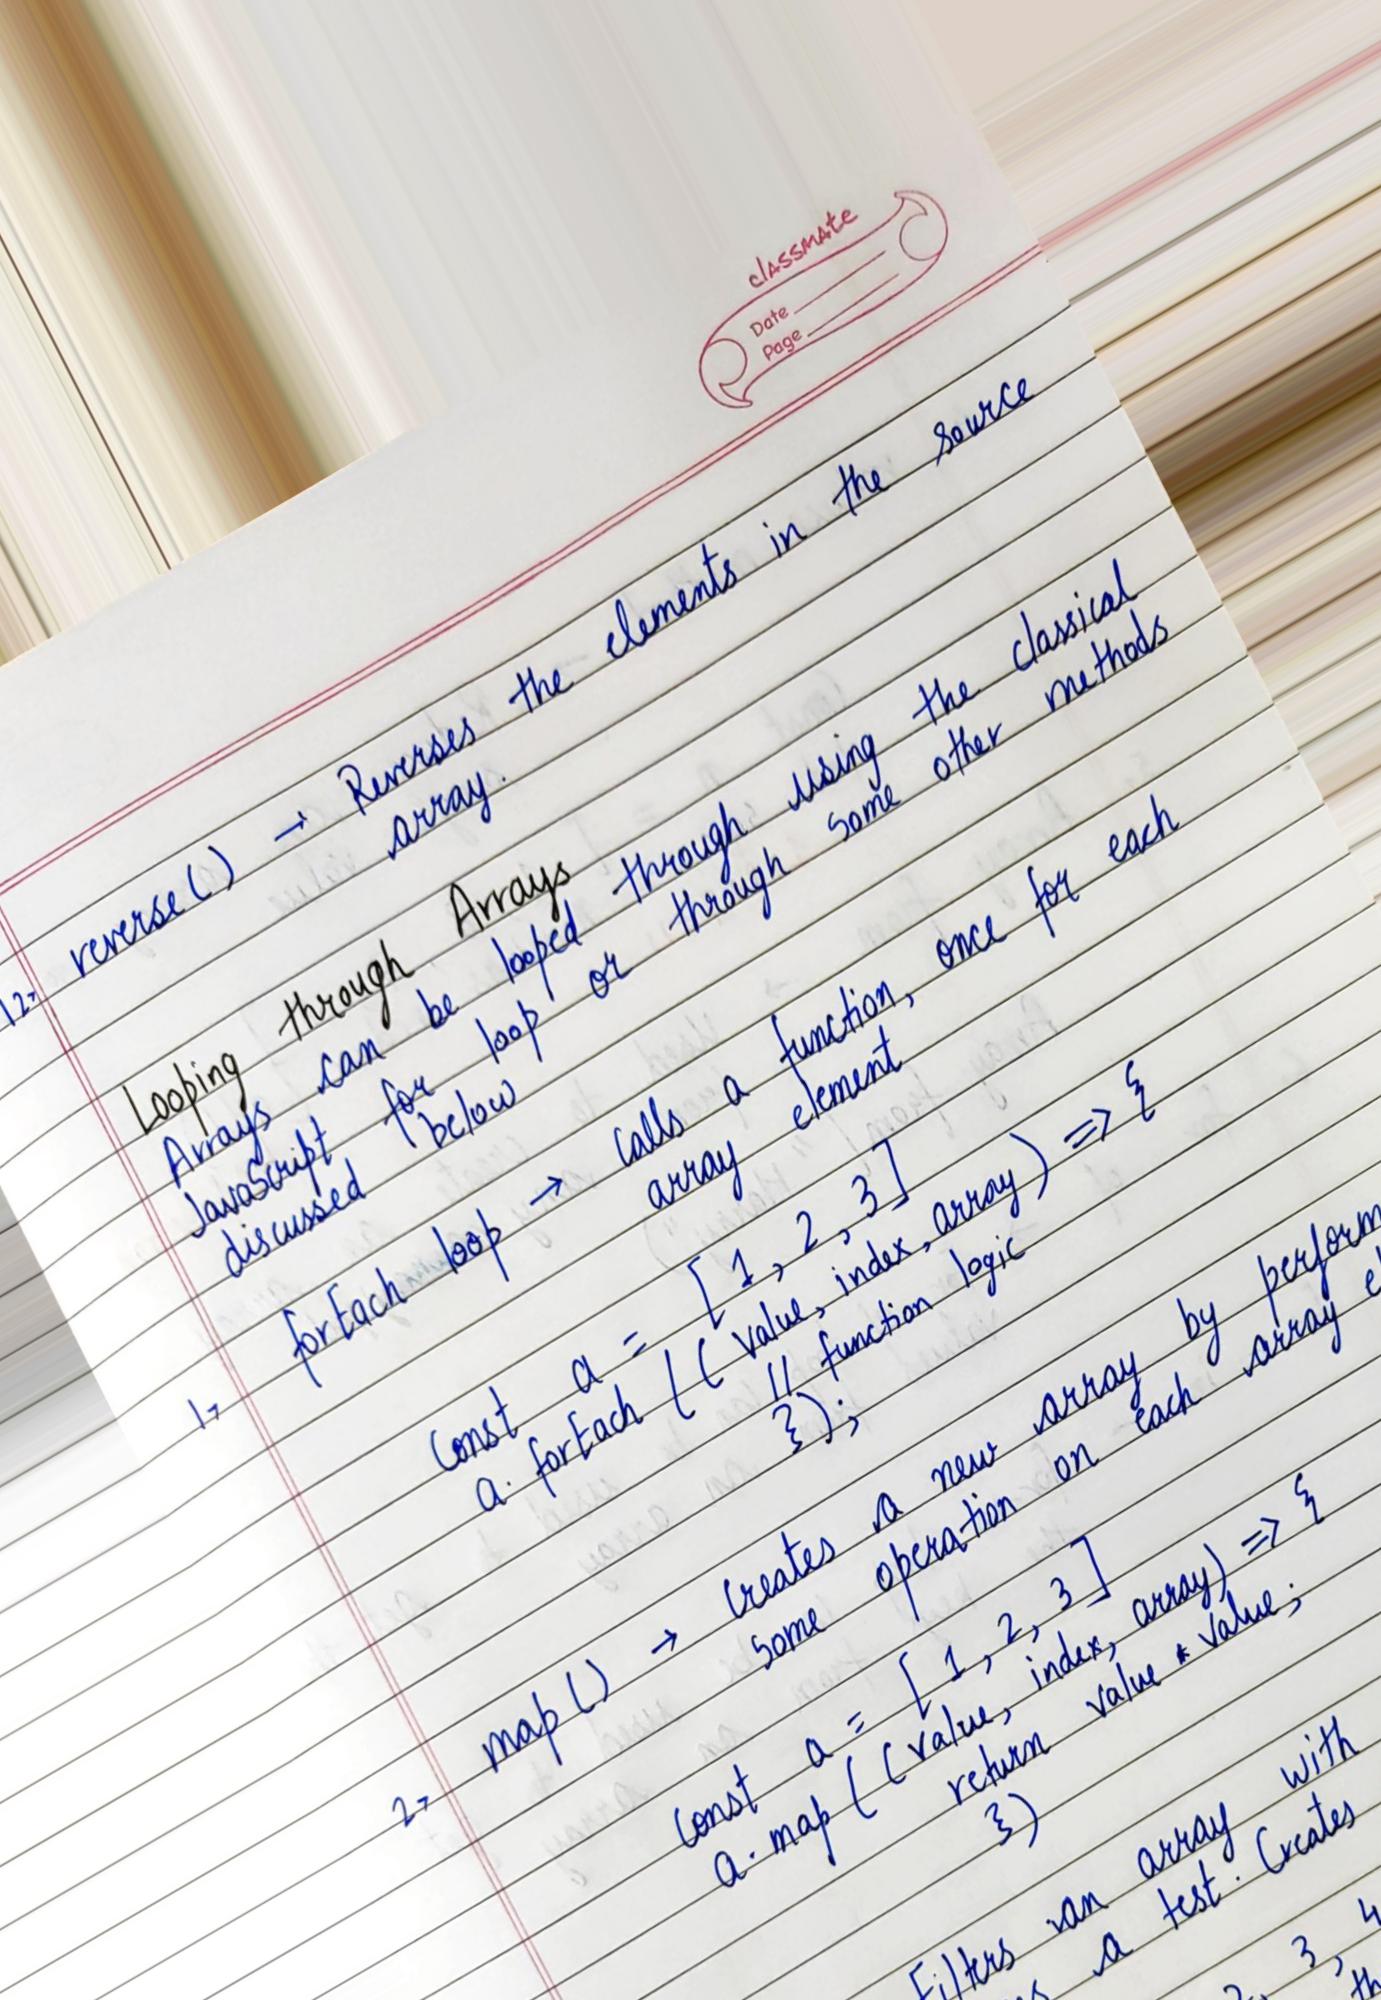 classmate
Date
Page
12→ reverse() → Reverses the elements in the source
array.
Looping through Arrays
Arrays can be looped through using the classical
JavaScript for loop or through some other methods
discussed below
1→ forEach loop → calls a function, once for each
array element
const a = [1, 2, 3]
a.forEach((value, index, array) => {
// function logic
});
2→ map() → creates a new array by perform
some operation on each array el
const a = [1, 2, 3]
a.map((value, index, array) => {
return value * value;
})
Filters an array with
a test. Creates
2, 3, 4